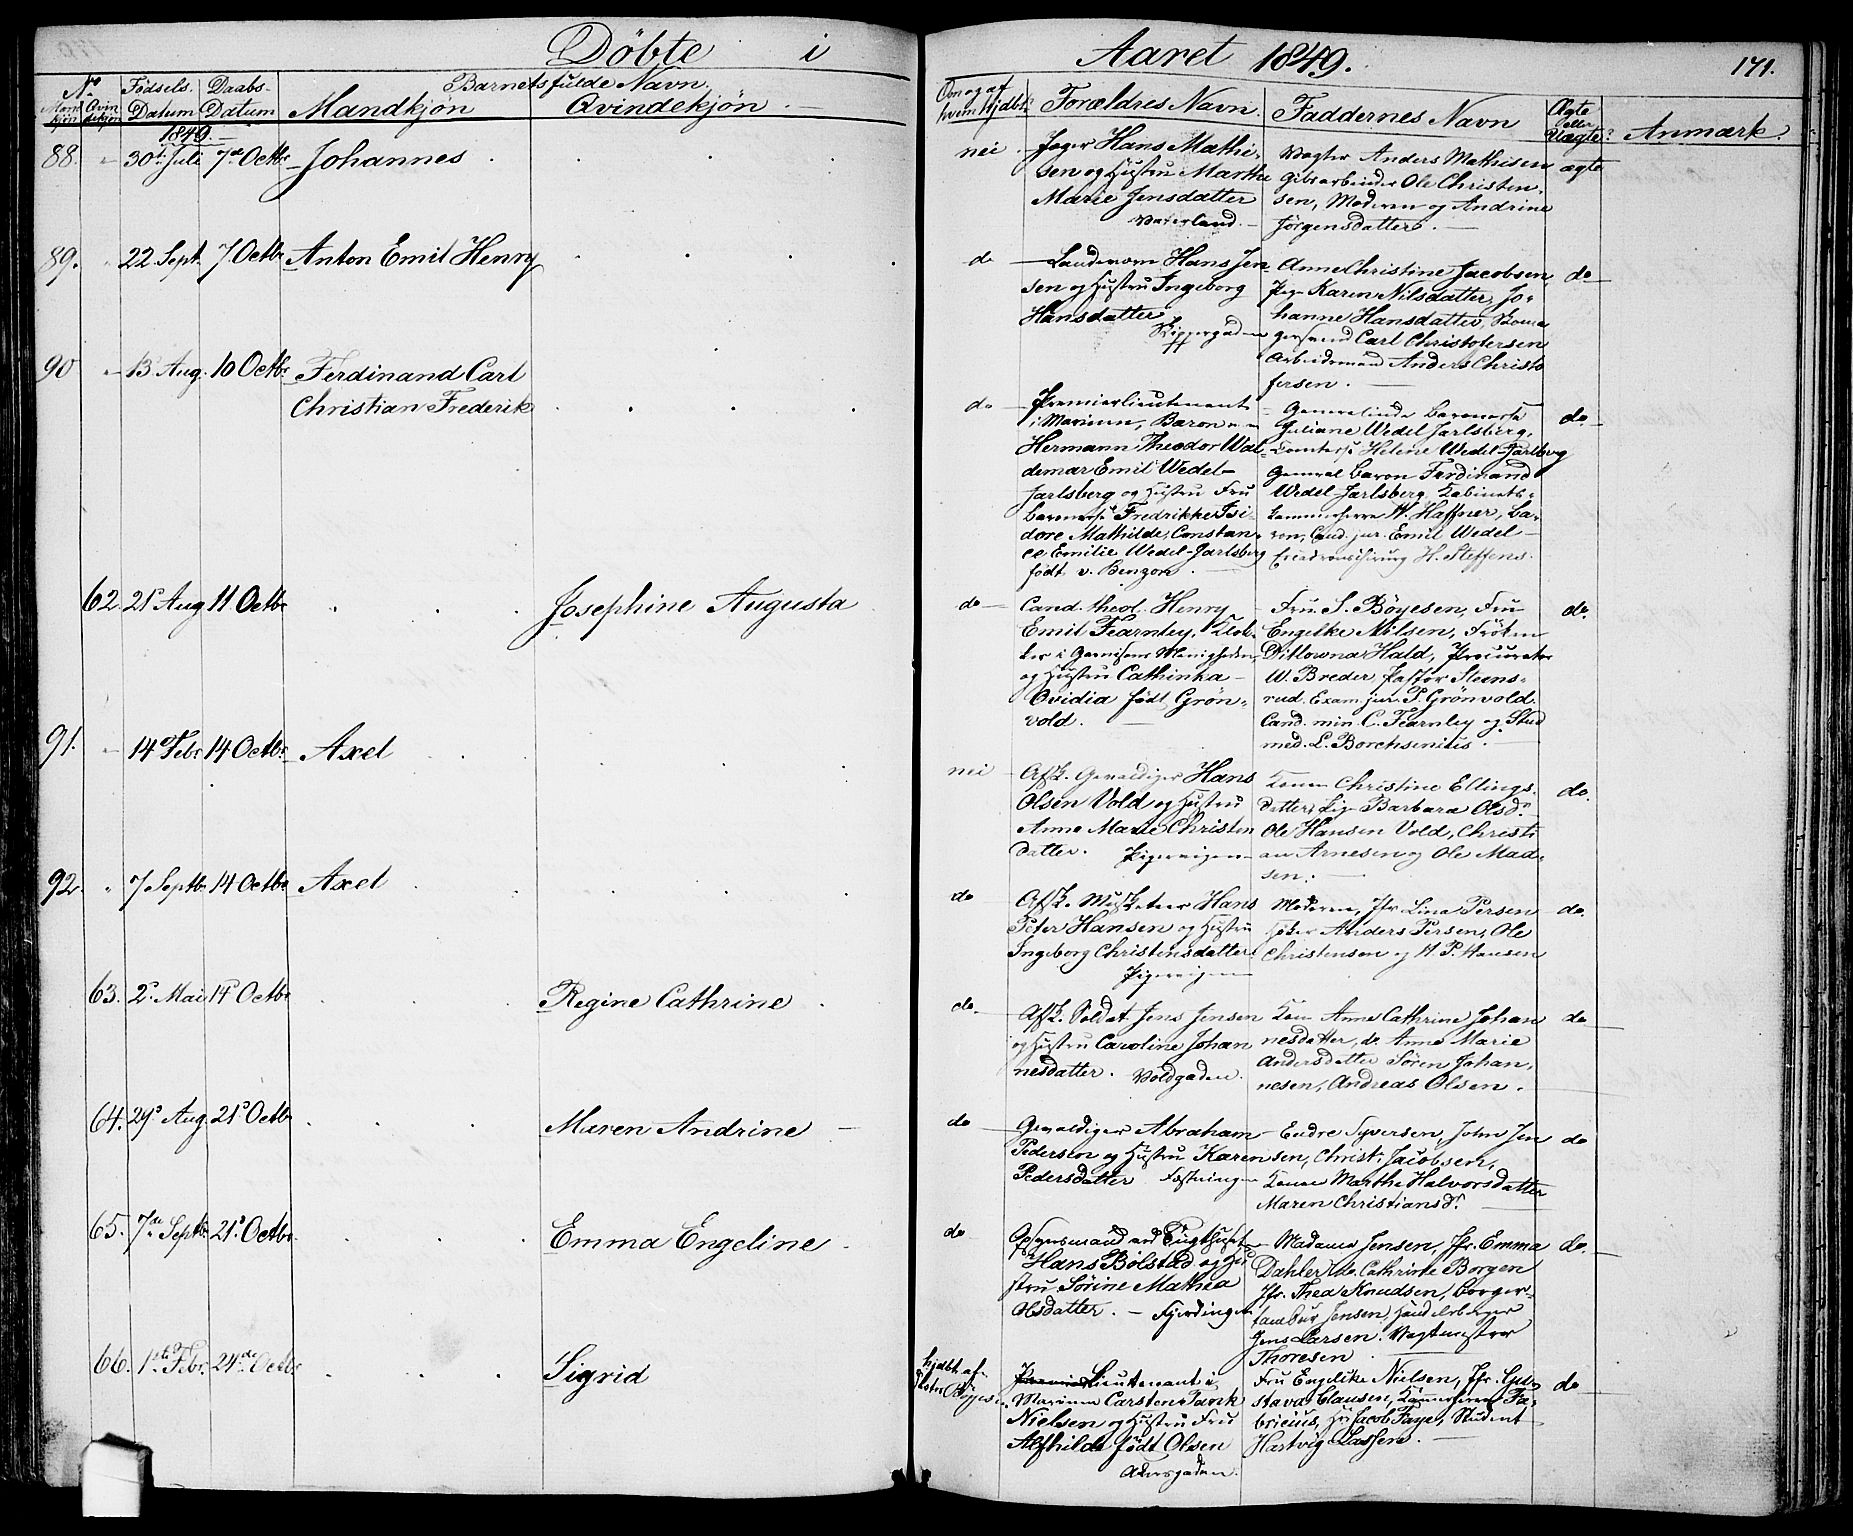 Döbte i
Aaret 1849.
171.
No
Fødsels
Daabs-
Barnets fulde Navn.
Mandkjön
Qvindekjön
Datum
Datum
Mandkjön
Qvindekjön.
Om og af hvem hjdbt?
Forældres Navn.
Faddernes Navn
Ægte eller Uægte?
Anmærk.
1849.
88. 30te Juli 7de Octbr Johannes
nei
Jæger Hans Mathi-
sen og Hustru Marthe
Marie Jensdatter
Vaterland.
Vægter Anders Mathisen
Gibsarbeider Ole Christen-
sen, Moderen og Andrine
Jörgensdatter.
ægte
89. 22 Sept. 7. Octbr Anton Emil Henry
do
Landsværn Hans Jen-
sen og Hustru Ingeborg
Hansdatter
Skippergaden
Anne Christine Jacobsen,
Pige Karen Nilsdatter, Jo-
hanne Hansdatter,
svend Carl Christofersen
Arbeidsmand Anders Christo
fersen.
do
90 13 Aug. 10 Octbr Ferdinand Carl
Christian Frederik
do
Premierlieutenant
i Marinen, Baron
Hermann Theodor Wal-
demar Emil Wedel-
Jarlsberg og Hustru Fru
Baronesse Fredrikke Isi-
dore Mathilde, Constan-
ce Emilie Wedel-Jarlsberg
födt v. Benzon.
Generalinde Baronesse
Juliane Wedel Jarlsberg,
Comtesse Helene Wedel-Jarlsberg
General Baron Ferdinand
Wedel-Jarlsberg, Kabinets-
kammerherre W. Haffner, Ba-
ron, Cand. jur. Emil Wedel
Escadronschirurg H. Steffens.
do.
62 21 Aug 11 Octbr Josephine Augusta
do
Cand. theol. Henry
Emil Fearnley, Klok-
ker i Garnisons Menigheden,
og Hustru Cathinka
Ovidia födt Grön-
vold.
Fru S. Böyesen, Fru
Engelke Nilsen, Fröken
Ditlowna Hald, Procurator
W. Breder, Pastor Steens-
rud. Exam. jur. P. Grönvold
Cand. min. C. Fearnley og Stud
med. L. Borchsenius.
do.
91. 14 Febr. 14 Octbr. Axel
nei
Afsk. Gevaldiger Hans
Olsen Vold og Hustru
Anne Marie Christen
datter. Pipervigen
Konen Christine Ellings-
datter, Pige Barbara Olsdr
Ole Hansen Vold, Christi
an Arnesen og Ole Mad-
sen.
do.
92. 7 Septbr. 14 Octbr. Axel
do
Afsk. Musketeer Hans
Peter Hansen og Hustru
Ingeborg Christensdatter
Pipervigen
Moderen, Jfr Lina Persen
Anders Persen, Ole
Christensen og H. P. Hansen
do.
63. 2 Mai 14 Octbr Regine Cathrine
do
Afsk. Soldat Jens Jensen
og Hustru Caroline Johan
nesdatter. Voldgaden.
Kone Anne Cathrine Johan
nesdatter, do Anne Marie
Andersdatter Sören Johan-
nesen, Andreas Olsen.
do
64. 29 Aug. 21 Octbr Maren Andrine
do
Gevaldiger Abraham
Pedersen og Hustru Karen
Pedersdatter Fæstningen
Endre Syversen, John Jen
sen, Christ. Jacobsen,
Konen Marthe Halvorsdatter
Maren Christiansdr.
do
65. 7de Septbr. 21. Octbr. Emma Engeline
do
Opsynsmand ved Tugthuset
Hans Bölstad og Hu-
stru Sörine Mathea
Olsdatter. Fjerdingen
Madame Jensen, Jfr. Emma
Dahler, Mde. Cathrine Borgen
Jfr. Thea Knudsen, Borger-
tambur Jensen, Handelsborger
Jens Larsen. Vagtmester
Thoresen
do.
66. 1ste Febr. 24de Octbr Sigrid
hjdbt. af
Pastor Böyesen
Premier Lieutenant i
Marinen Carsten Tank
Nielsen og Hustru Fru
Alfhilde födt Olsen
Akersgaden.
Fru Engelike Nielsen, Jfr. Gu-
stava Clausen, Kammerherre Fa-
bricius, Hr Jacob Faye, Student
Hartvig Lassen.
do